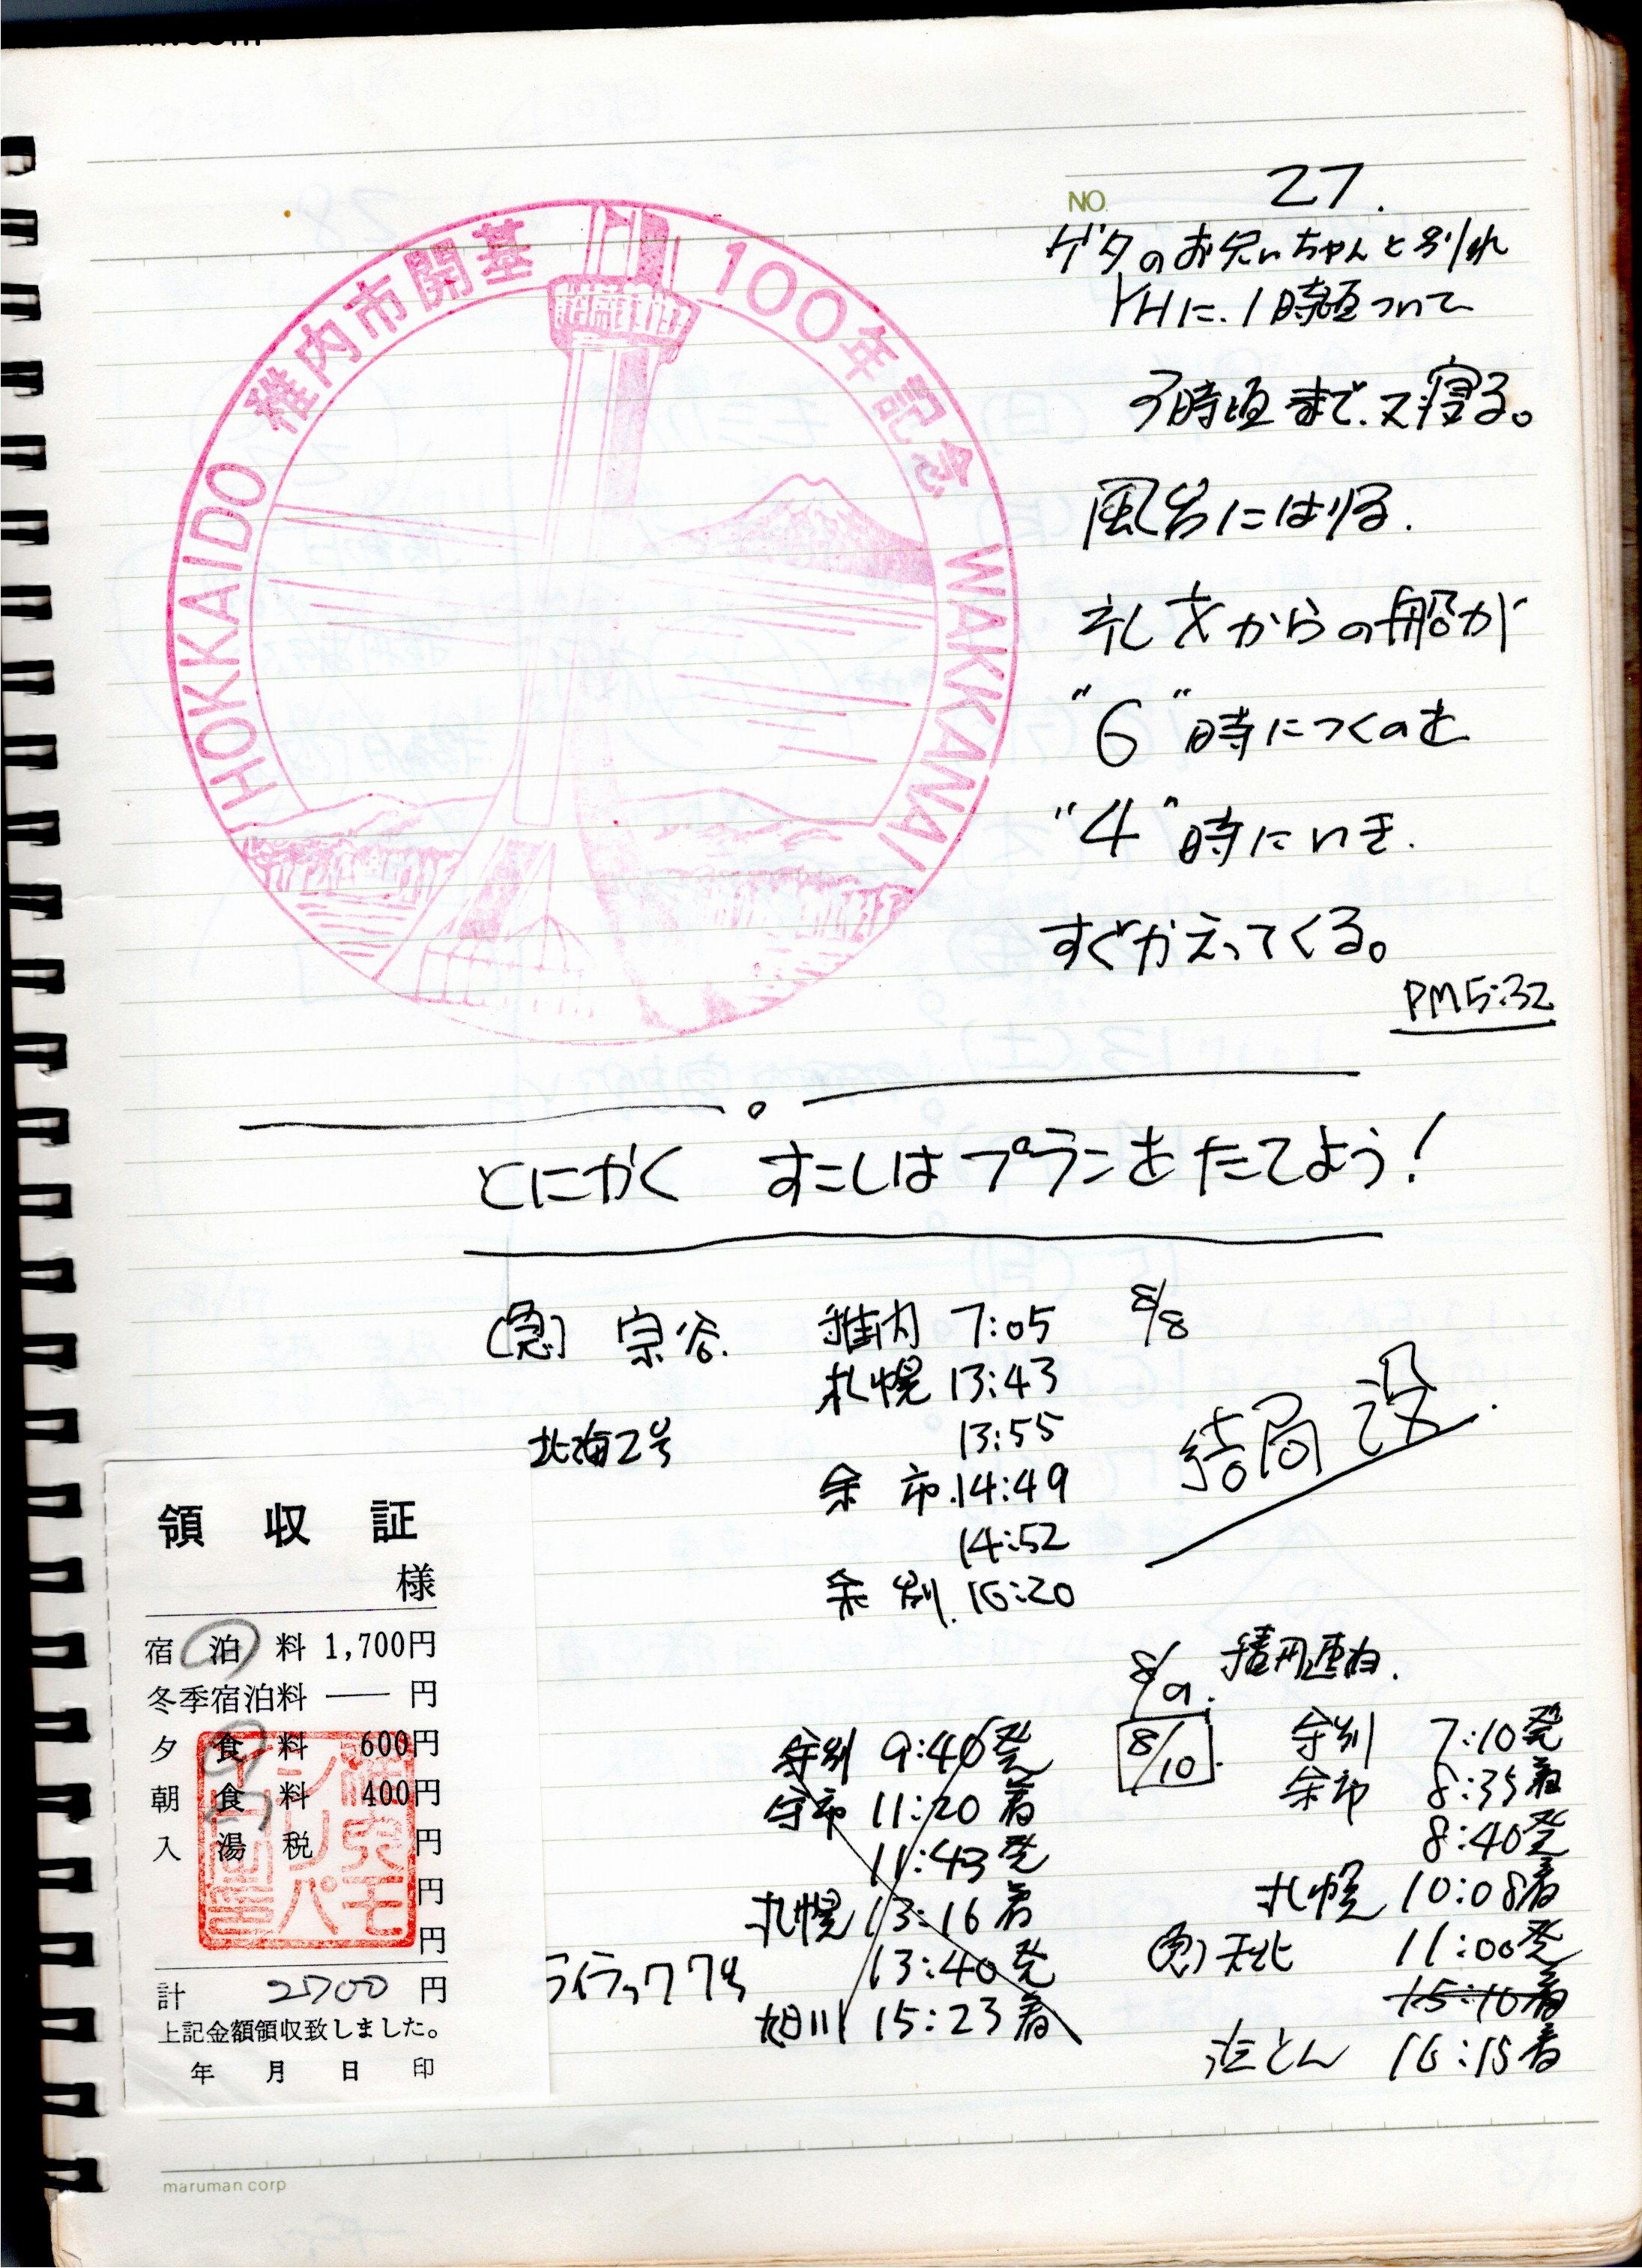 NO. 27.
ゲタのお兄いちゃんと別れ
YHに.1時頃ついて
3時頃まで.又寝る。
風呂にはいる.
礼文からの船が
"6"時につくのを
"4"時にいき.
すぐかえってくる。
PM5:32
稚内市開基100年記念
HOKKAIDO WAKKANAI
とにかく すこしはプランをたてよう!
(急) 宗谷. 稚内 7:05 8/8
札幌 13:43
北海2号 13:55
余市.14:49
14:52
余別.16:20
結局没.
8/9.
8/10.
余別 9:40発
余市 11:20着
11:43発
札幌 13:16着
ライラック7号 13:40発
旭川 15:23着
余別 7:10発
余市 8:35着
8:40発
札幌 10:08着
(急)天北 11:00発
15:10着
浜とん 16:15着
領収証
様
宿泊料 1,700円
冬季宿泊料 ── 円
夕食料 600円
朝食料 400円
入湯税 円
円
円
計 2700 円
上記金額領収致しました。
年 月 日 印
maruman corp